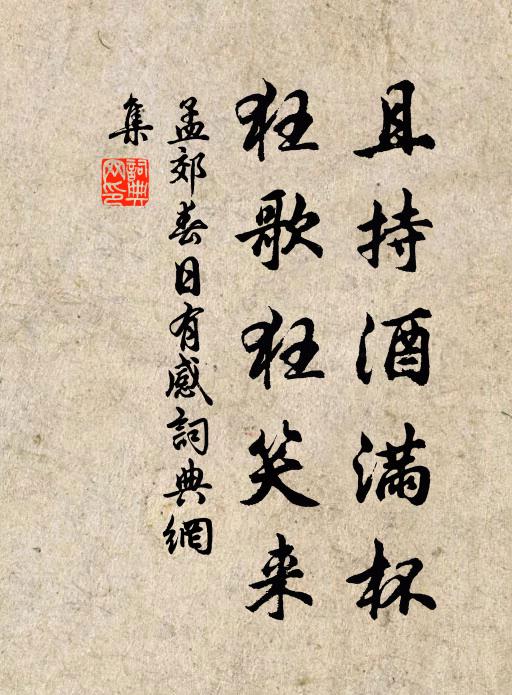 且持酒满杯
狂歌狂笑来
孟郊春日有感词典網
集
詞典
网印